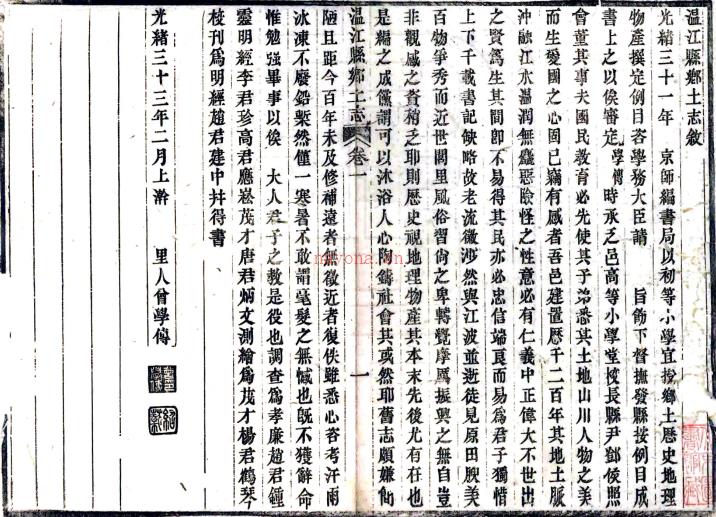 温江縣鄉土志敘
光緒三十一年　京師編書局以初等小學宜授鄉土歷史地理
物產撰定例目咨學務大臣請　旨飭下督撫發縣按例目成
書上之以俟審定學傳時承乏邑高等小學堂校長縣尹鄧侯照
會董其事夫國民教育必先使其子弟悉其土地山川人物之美
而生愛國之心固已竊有感者吾邑建置歷千二百年其地土脈
沖融江水溫潤無囂惡險怪之性意必有仁義中正偉大不世出
之賢為生其間卽不易得其民亦必忠信端良而易為君子獨惜
上下千載書記缺略故老流徽渺然與江波並逝徒見原田腴美
百物爭秀而近世閭里風俗習尚之卑轉覺摩厲振興之無自豈
非觀感之資稍乏耶則歷史視地理物產其本末先後尤有在也
是編之成儻謂可以沐浴人心陶鑄社會其或然耶舊志頗嫌簡
温江縣鄉土志　卷一　一
陋且距今百年未及修補遠者無徵近者復佚雖悉心咨考汗雨
冰凍不廢鉛槧然僅一寒暑不敢謂毫髮之無憾也旣不獲辭命
惟勉強畢事以俟　大人君子之教是役也調查為孝廉趙君鍾
靈明經李君珍高君應崧茂才唐君炳文測繪為茂才楊君鶴琴
校刊為明經趙君建中幷得書
光緒三十三年二月上澣　里人曾學傳